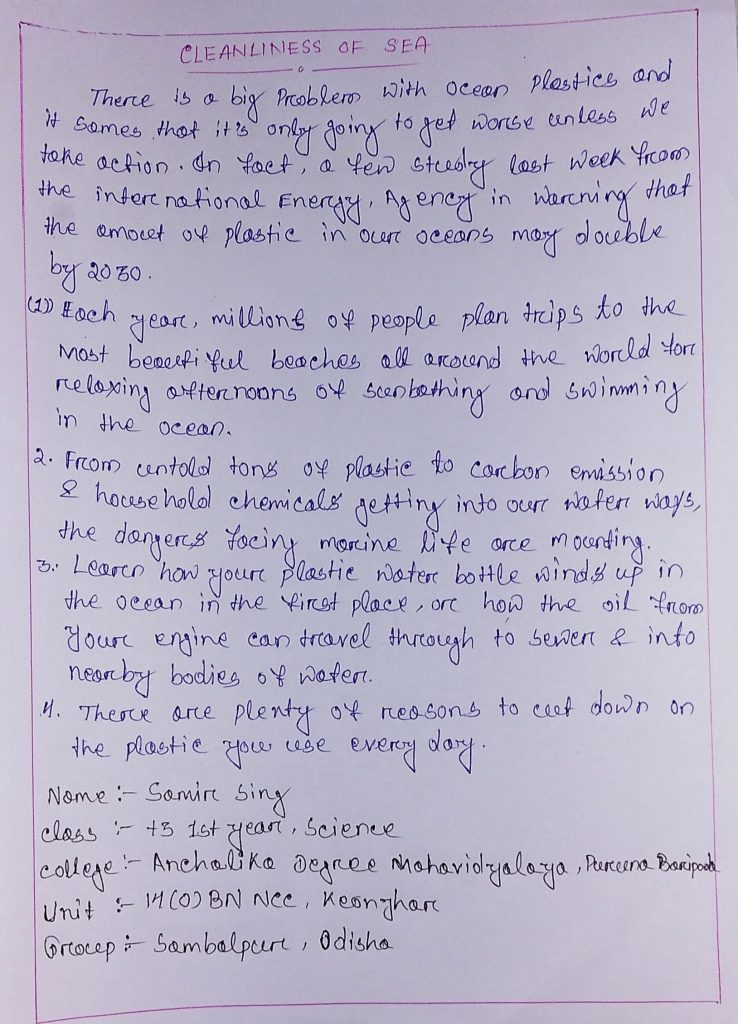 CLEANLINESS OF SEA
There is a big Problem with ocean plastics and
it sames that it's only going to get worse unless we
take action. In fact, a few study last week from
the international Energy, Agency in warning that
the amout of plastic in our oceans may double
by 2030.
(1)) Each year, millions of people plan trips to the
most beautiful beaches all around the world for
relaxing afternoons of sunbathing and swimming
in the ocean.
2. From untold tons of plastic to carbon emission
& household chemicals getting into our water ways,
the dangers facing marine life are mounting.
3. Learn how your plastic water bottle winds up in
the ocean in the first place, or how the oil from
your engine can travel through to sewer & into
nearby bodies of water.
4. There are plenty of reasons to cut down on
the plastic you use every day.
Name :- Samir Sing
class :- +3 1st year, Science
college :- Anchalika Degree Mahavidyalaya, Puruna Baripada
Unit :- 14 (O) BN NCC, Keonjhar
Group :- Sambalpur, Odisha